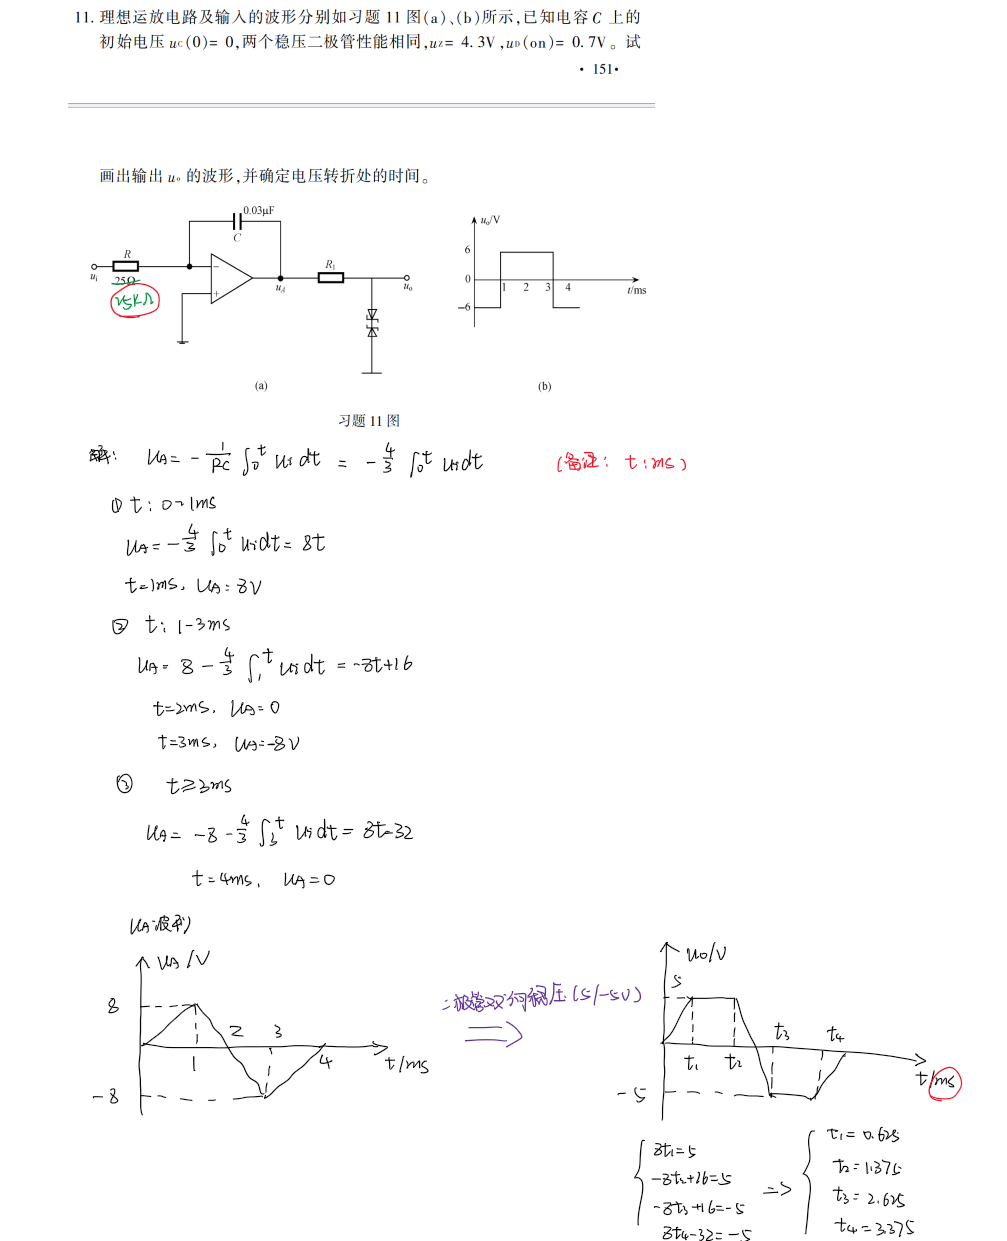 11. 理想运放电路及输入的波形分别如习题 11 图(a)、(b)所示,已知电容 C 上的
初始电压 uC(0)= 0,两个稳压二极管性能相同,uZ= 4.3V,uD(on)= 0.7V。试
· 151·
画出输出 uo 的波形,并确定电压转折处的时间。
0.03μF
C
R
ui
25Ω
25KΩ
−
+
uA
R1
uo
(a)
uo/V
6
0
−6
1 2 3 4
t/ms
(b)
习题 11 图
解: UA= - 1/RC ∫0^t Ui dt = - 4/3 ∫0^t Ui dt
(备注: t:ms)
① t: 0~1ms
UA= - 4/3 ∫0^t Ui dt = 8t
t=1ms, UA= 8V
② t: 1-3ms
UA= 8 - 4/3 ∫1^t Ui dt = -8t+16
t=2ms, UA= 0
t=3ms, UA=-8V
③ t≥3ms
UA= -8 - 4/3 ∫3^t Ui dt = 8t-32
t=4ms, UA=0
UA波形
UA/V
8
-8
1
2
3
4
t/ms
二极管双向稳压(5/-5V)
Uo/V
5
-5
t1
t2
t3
t4
t/ms
8t1=5
-8t2+16=5
-8t3+16=-5
8t4-32=-5
=>
t1= 0.625
t2= 1.375
t3= 2.625
t4= 3.375